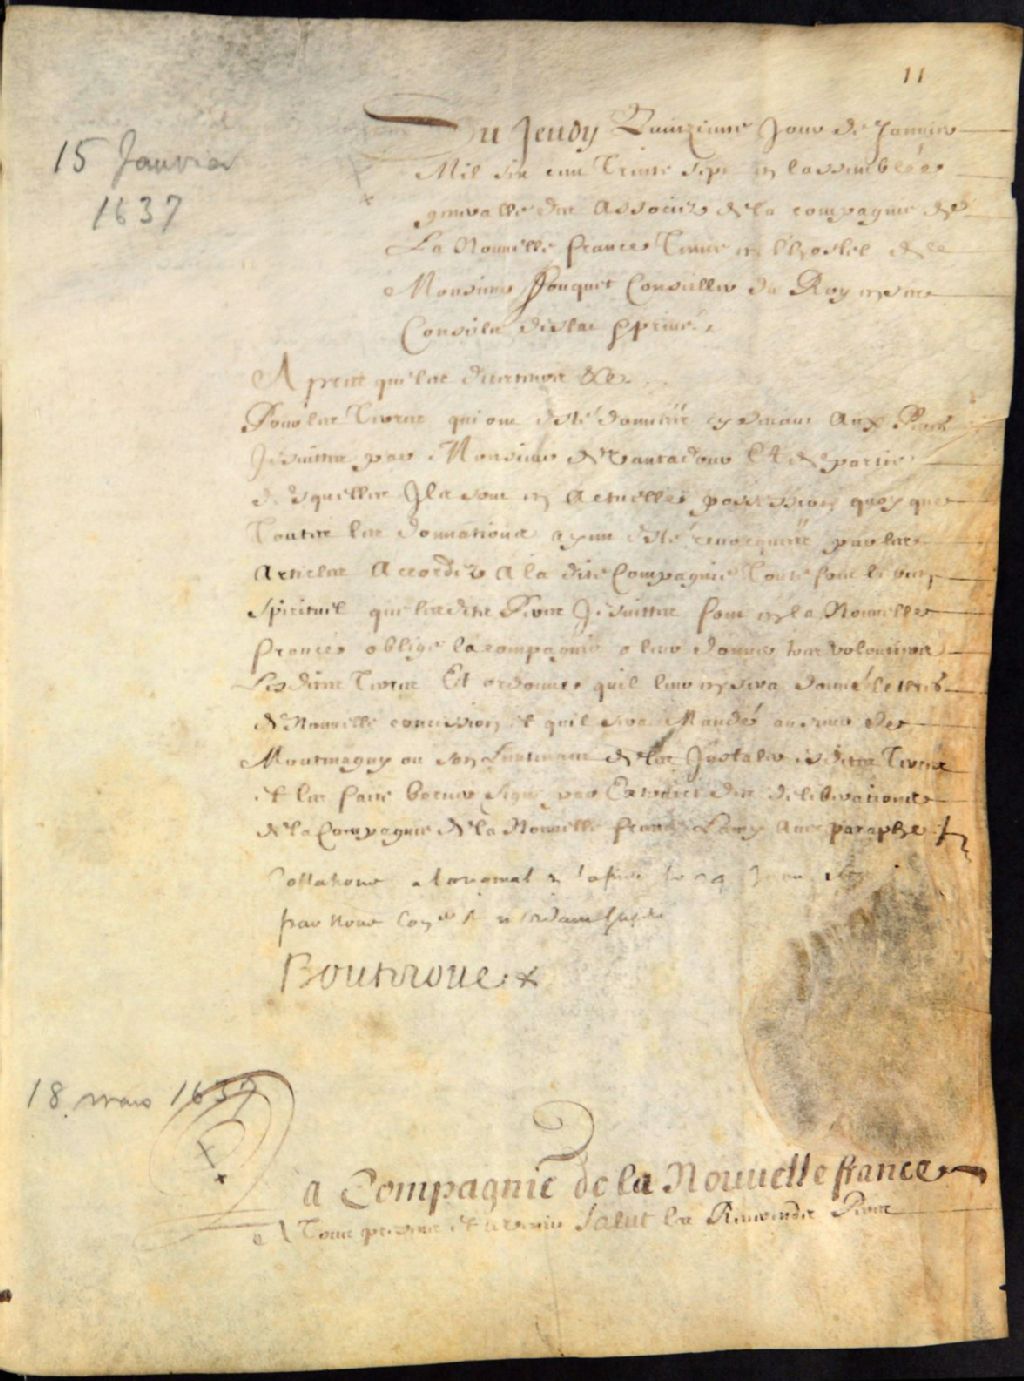 11
15 Janvier
1637
Du Jeudy Quinziesme Jour de Janvier
Mil six cens Trente sept en lassemblée
generalle des Associez de la compagnie de
La Nouvelle france Tenue en lhostel de
Monsieur fouquet Conseiller du Roy en ses
Conseils destat & privé
Apres que les &c
Pour les Terres qui ont esté données cy devant Aux Peres
Jesuittes par Monsieur de Vantadour Et de partie
desquelles Ils sont en Actuelle possession quoy que
Toutes les donnations ayent esté revocquées par les
Articles Accordez A la dite Compagnie Toutefois le bien
Spirituel que lesdits Peres Jesuittes font en la Nouvelle
france oblige la compagnie a leur donner tres volontiers
Lesdites Terres Et ordonne quil leur en sera donné lettres
de Nouvelle concession et quil sera Mandé au sieur de
Montmagny ou son Lieutenant de les Installer esdites Terres
et les faire borner Signé par Extraict des deliberations
de la Compagnie de la Nouvelle france Lamy Avec paraphe
Collationé a loriginal
par Nous
Bouteroue
18 mars 1637
La Compagnie de la Nouvelle france
A Tous presens et advenir Salut les Reverendz Peres